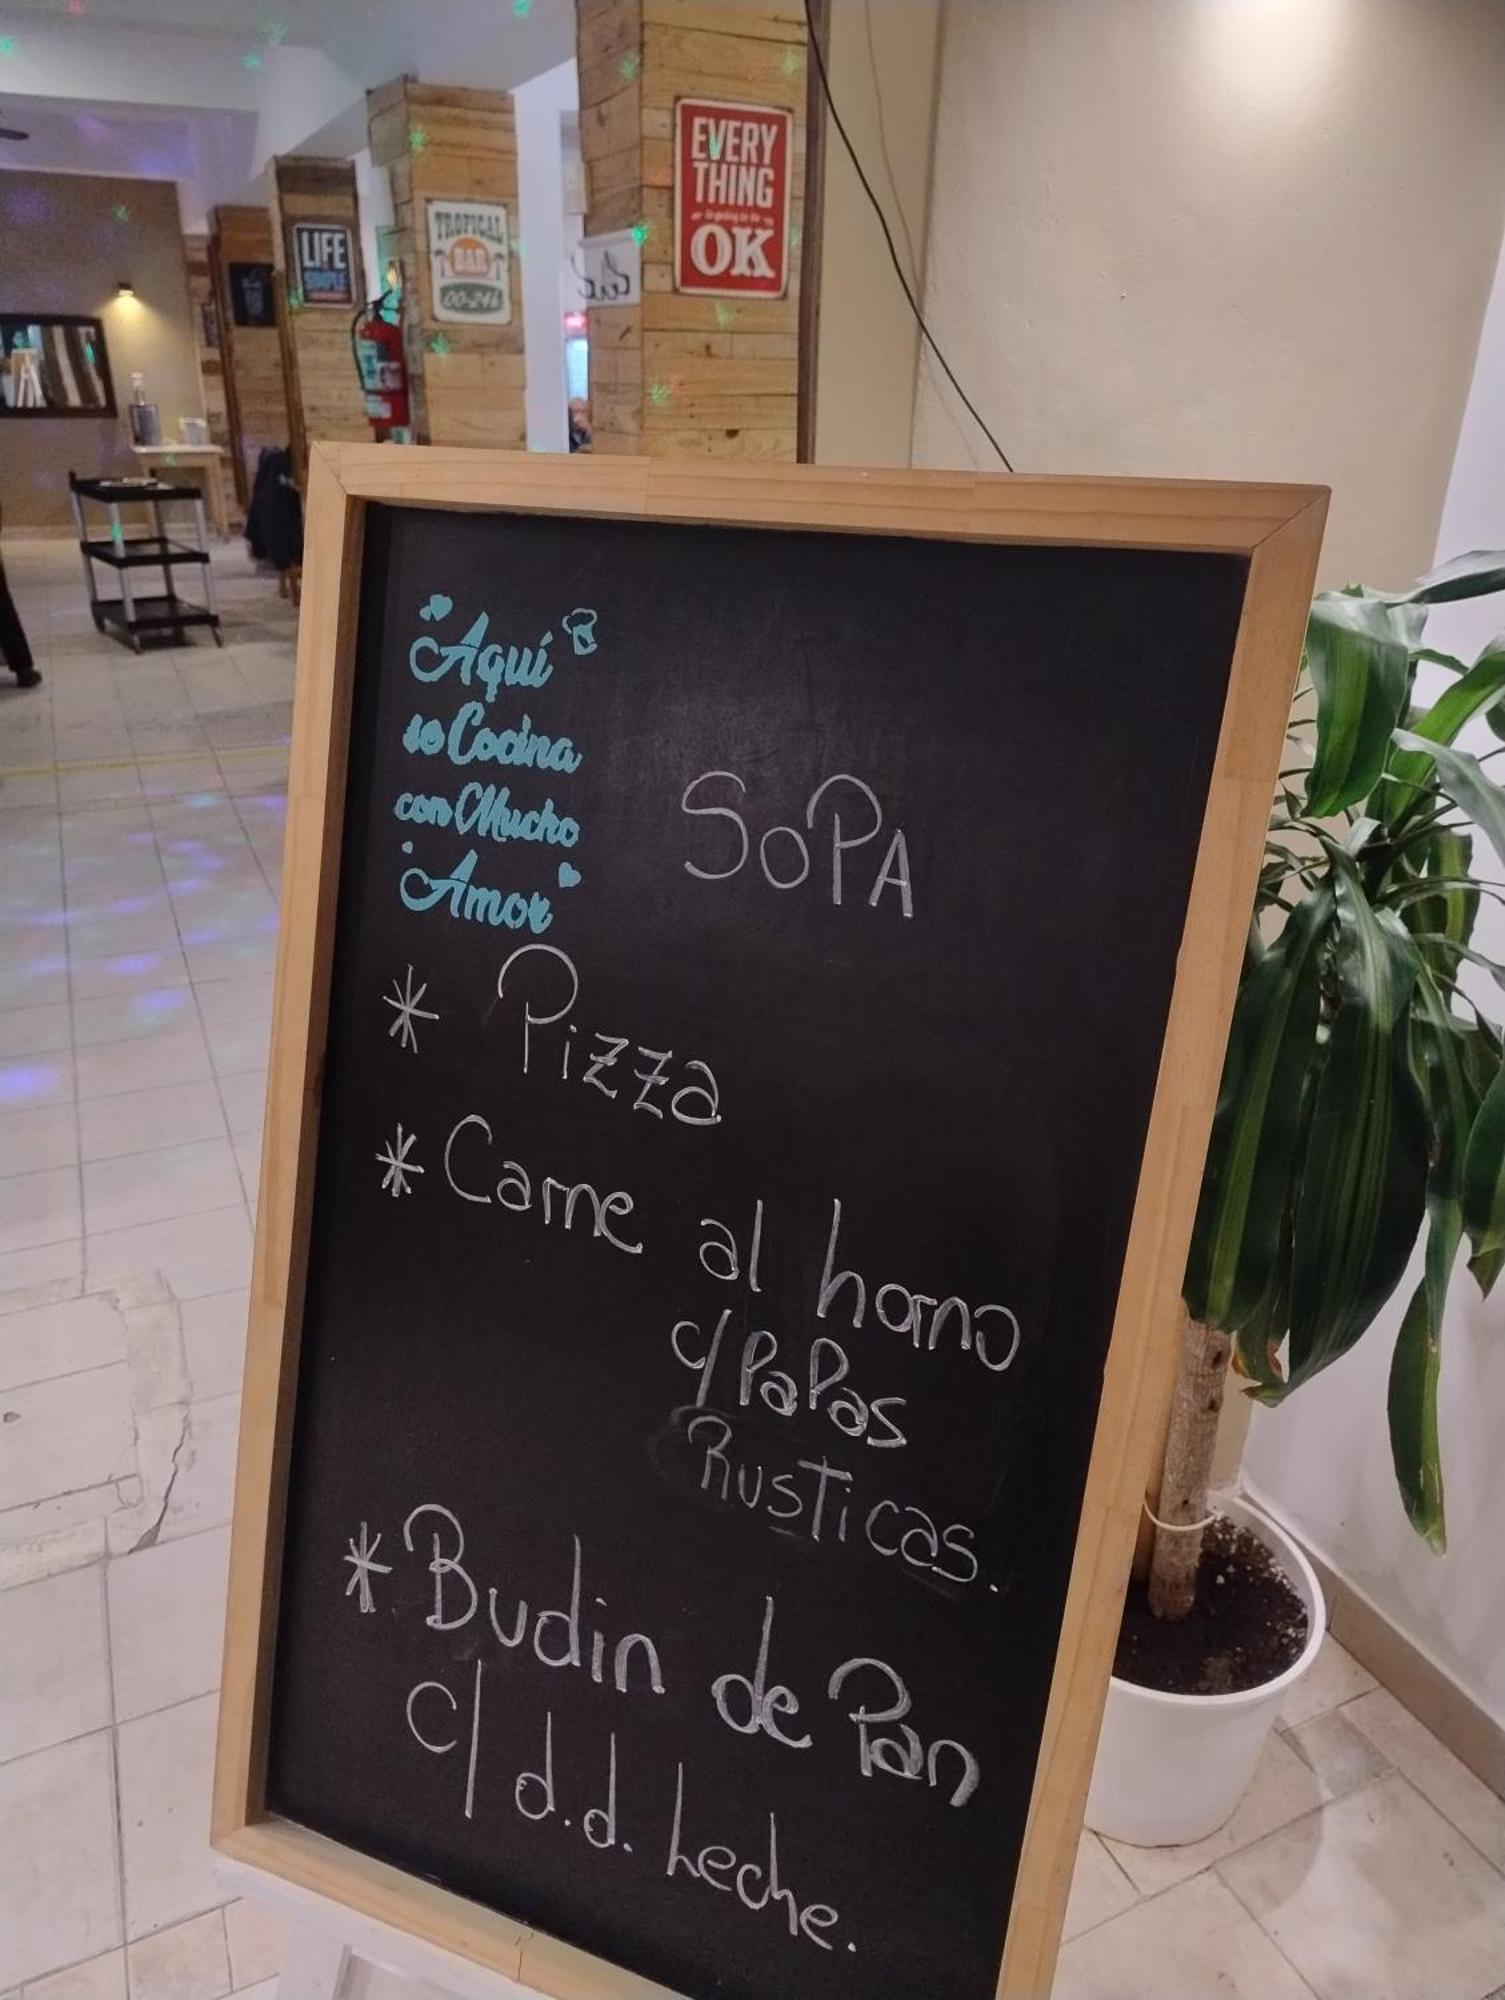 EVERY
THING
is going to be
OK
TROPICAL
BAR
00-24h
LIFE
SIMPLE
"Aquí
se Cocina
con Mucho
Amor
SOPA
* Pizza
* Carne al horno
c/ PaPas
RusTicas.
* Budin de Pan
c/ d.d. Leche.